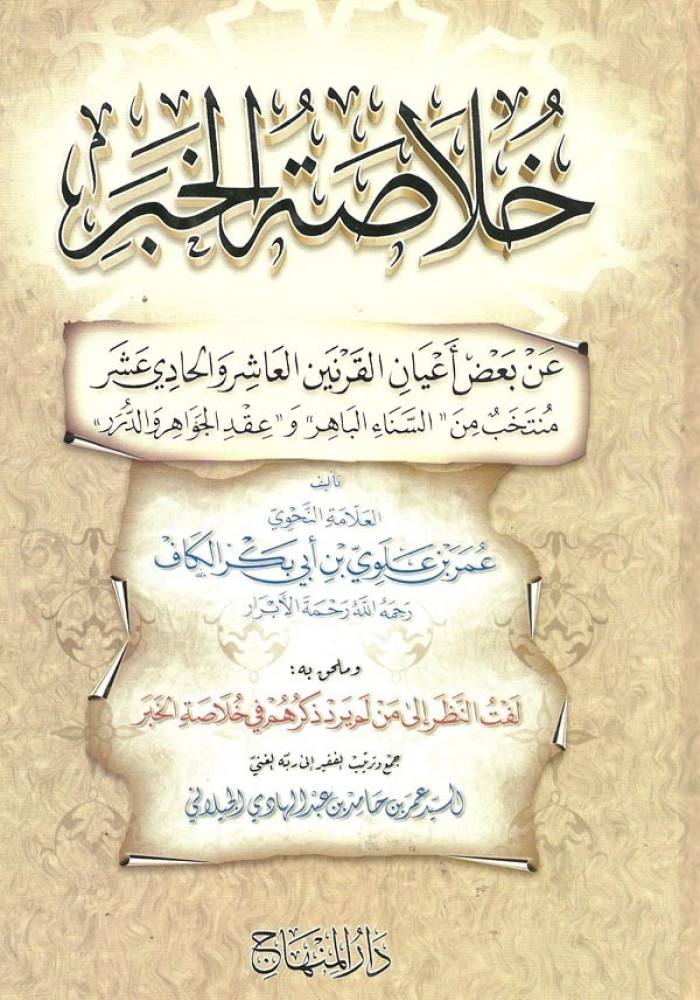 خُلَاصَةُ الخَبَرِ
عَنْ بَعْضِ أَعْيَانِ القَرْنَيْنِ العَاشِرِ وَالحَادِي عَشَرَ
مُنتَخَبٌ مِنَ "السَّنَاءِ البَاهِرِ" وَ "عِقْدِ الجَوَاهِرِ وَالدُّرَرِ"
تأليف
العَلَّامَةِ النَّحْوِيِّ
عُمَرَ بْنِ عَلَوِيِّ بْنِ أَبِي بَكْرٍ الكَافِ
رَحِمَهُ اللهُ رَحْمَةَ الأَبْرَارِ
وملحق به:
لَفْتُ النَّظَرِ إِلَى مَنْ لَمْ يَرِدْ ذِكْرُهُمْ فِي خُلَاصَةِ الخَبَرِ
جمع وترتيب الفقير إلى ربه الغني
السَّيِّد عُمَر بْن حَامِد بْن عَبْد الهَادِي الجِيلَانِي
دَارُ المِنْهَاجِ